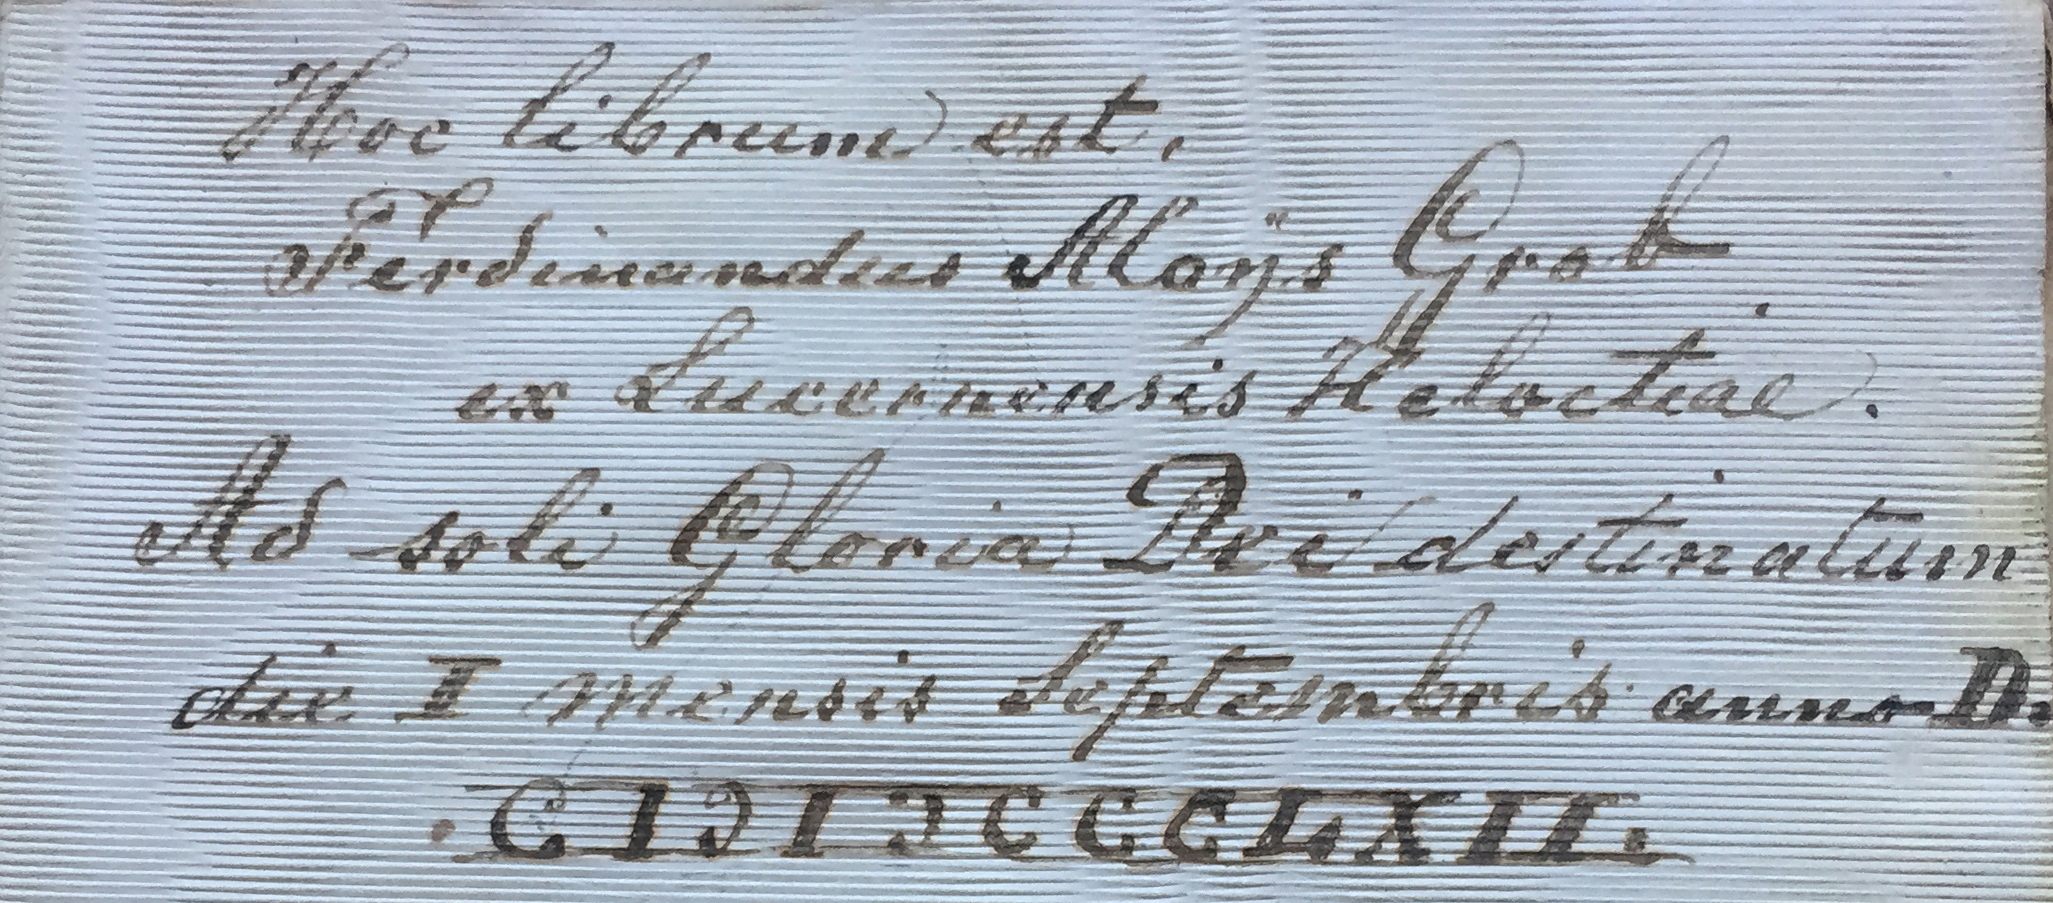 Hoc librum est.
Ferdinandus Aloÿs Grob
ex Lucernensis Helvetiae.
Ad soli Gloria Dei destinatum
die I mensis Septembris anno D.
CIƆIƆCCCLXII.